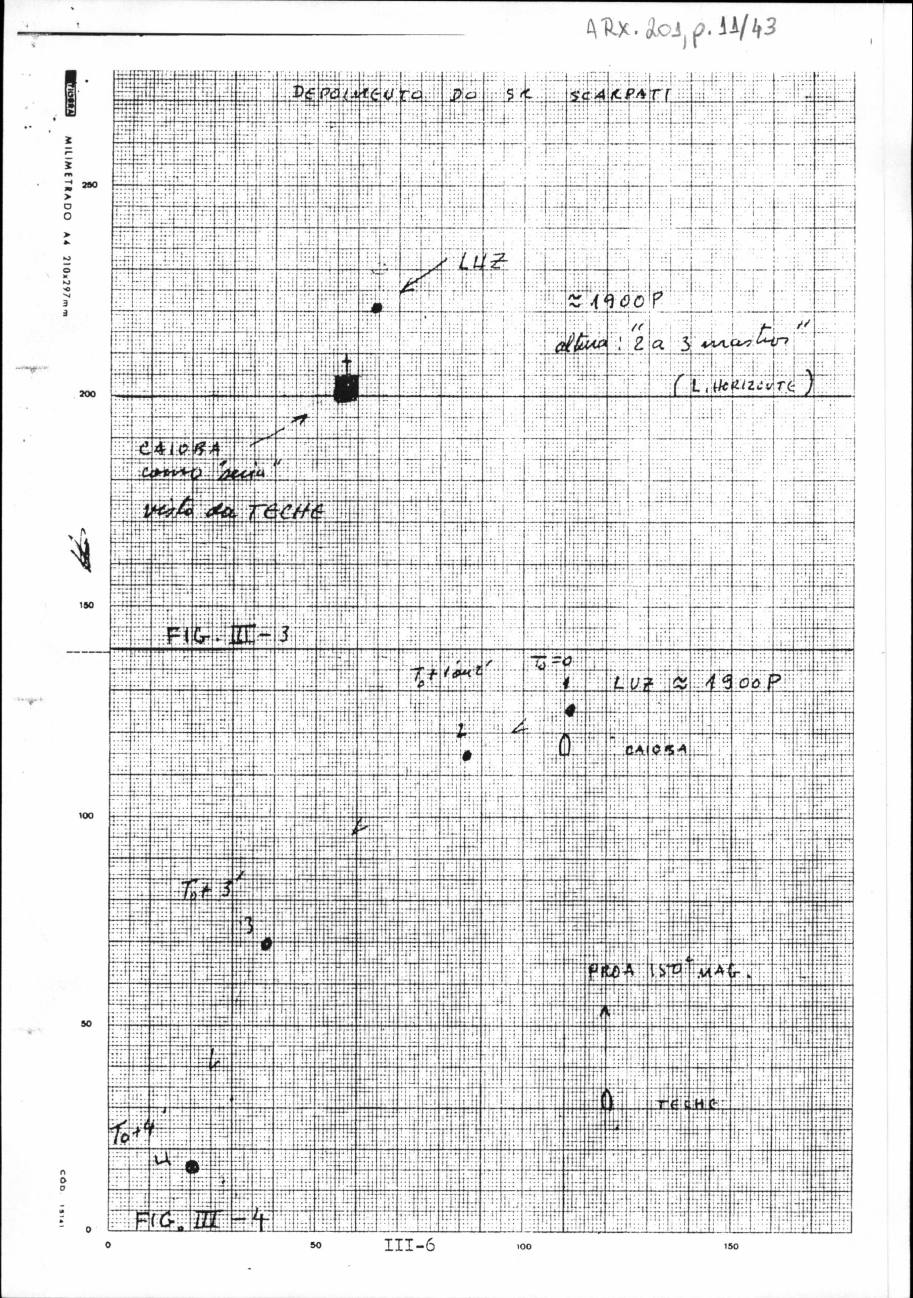 ARX. 201, p. 11/43
DEPOIMENTO DO SR SCARPATI
MILIMETRADO A4 210x297mm
250
LUZ
≈ 1900P
altura: "2 a 3 mastros"
200
(L. HORIZONTE)
CAIOBA
como "seria"
visto da TECHE
150
FIG. III-3
T₀+1 ou 2'
T₀=0
1
LUZ ≈ 1900P
2
CAIOBA
100
T₀+3'
3
PROA 150° MAG.
50
TECHE
T₀+4'
4
FIG. III-4
0
0
50
III-6
100
150